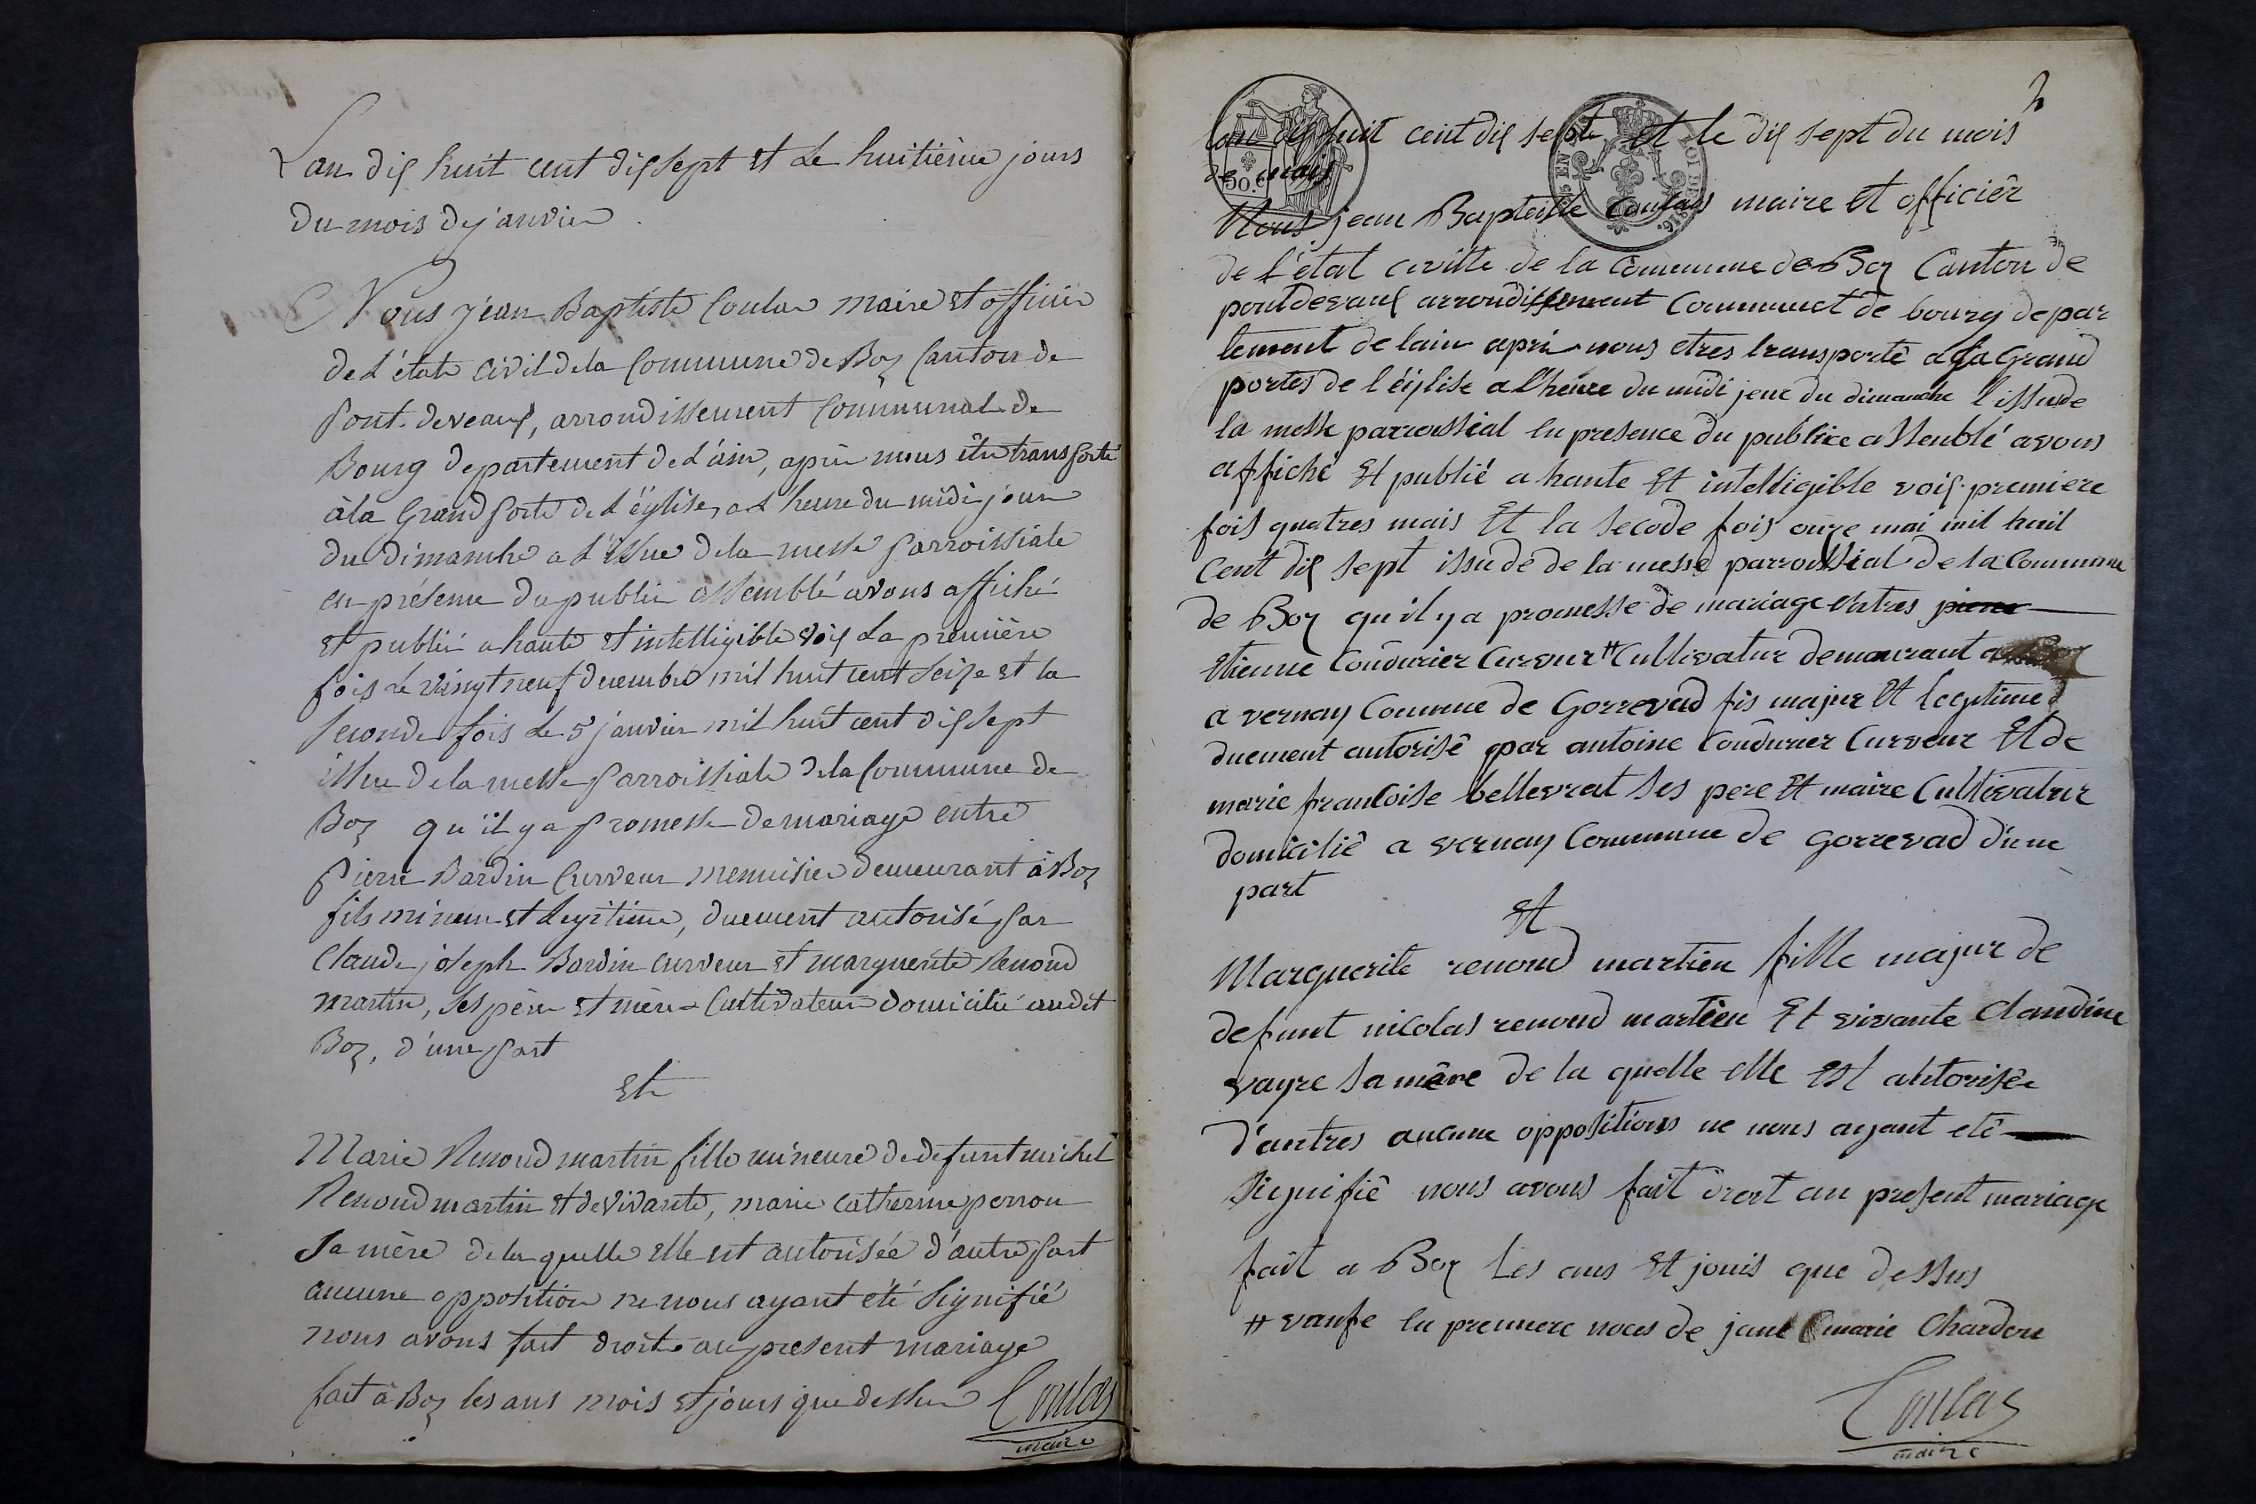 L'an dix huit cent dix sept et le huitième jours
du mois de janvier
Nous Jean Baptiste Coulas maire et officier
de l'état civil de la Commune de Boz Canton de
Pont-deveaux, arrondissement Communal de
Bourg departement de l'ain, après nous être transporté
à la Grand porte de l'église, a l'heure du midi jour
du dimanche a l'issue de la messe parroissiale
en présence du public assemblé avons affiché
et publié a haute et intelligible voix la première
fois le vingt neuf decembre mil huit cent seize et la
seconde fois le 5 janvier mil huit cent dix sept
issue de la messe parroissiale de la Commune de
Boz qu'il y a promesse de mariage entre
Pierre Bardin Curveur menuisier demeurant à Boz
fils mineur et legitime, duement autorisé par
Claude joseph Bardin curveur et marguerite Renoud
martin, ses père et mère Cultivateur domicilié audit
Boz, d'une part
Et
Marie Renoud martin fille mineure de defunt michel
Renoud martin et de vivante, marie catherine perron
Sa mère de la quelle elle est autorisée d'autre part
aucune opposition ne nous ayant été signifié
nous avons fait droit au present mariage
fait à Boz les ans mois et jours que dessus Coulas
maire
2
50 c
EN SUS
LOI DE 1816.
lan dix huit cent dix sept et le dix sept du mois
de mais
Nous jean Bapteiste Coulas maire et officièr
de l'état civille de la Commune de Boz Canton de
pontdevaux arrondissement Communel de bourg depar
tement de lain apri nous etres transportê a la Grand
portes de l'église a l'heure du midi jeur du dimanche l'issude
la messe parroissial en presence du publice assemblé avons
affiché Et publié a haute Et intelligible voix premiere
fois quatres mais Et la secode fois onze mai mil huit
Cent dix sept issude de la messe parroissial de la Commune
de Boz qu'il y a promesse de mariage entres pierre
Etienne Coudurier Curveur # Cultivatur demeurant a Boz
a vernay Commune de Gorrevad fis majur Et legitime
duement autorisê par antoine Coudurier Curveur Et de
marie francoise bellevrat ses pere Et maire Cultivatur
domicilié a vernay Commune de gorrevad d'une
part
Et
Marguerite renoud martien fille majur de
defunt nicolas renoud martien Et vivante Claudine
vayre sa mère de la quelle elle Est autorisée
d'autres aucune oppositions ne nous ayant eté
signifiê nous avons fait drort au present mariage
fait a Boz Les ans Et jouis que dessus
# vaufe en premiere noces de jane marie Chardon
Coulas
maire